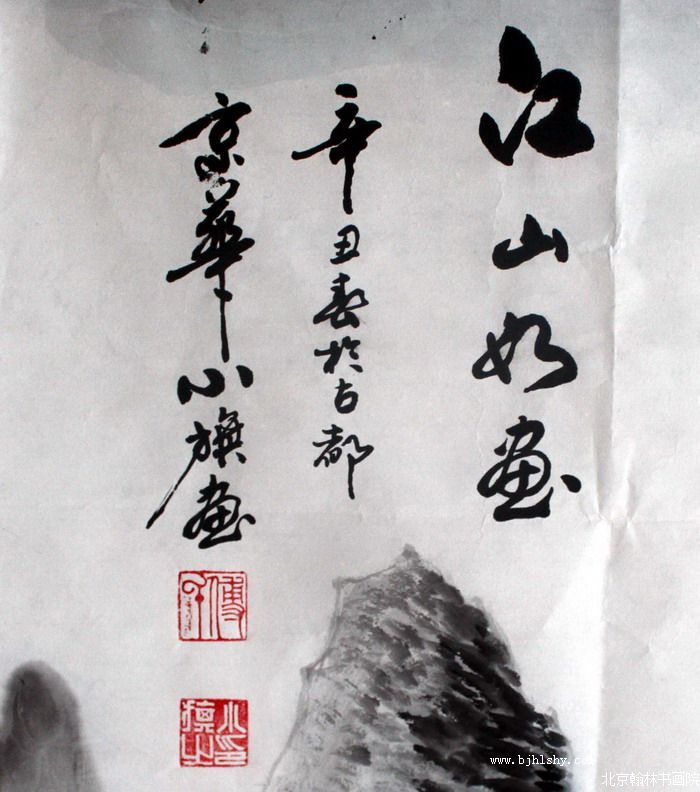 江山如画
辛丑春於古都
京華小旗画
www.bjhlshy.com
北京翰林书画院